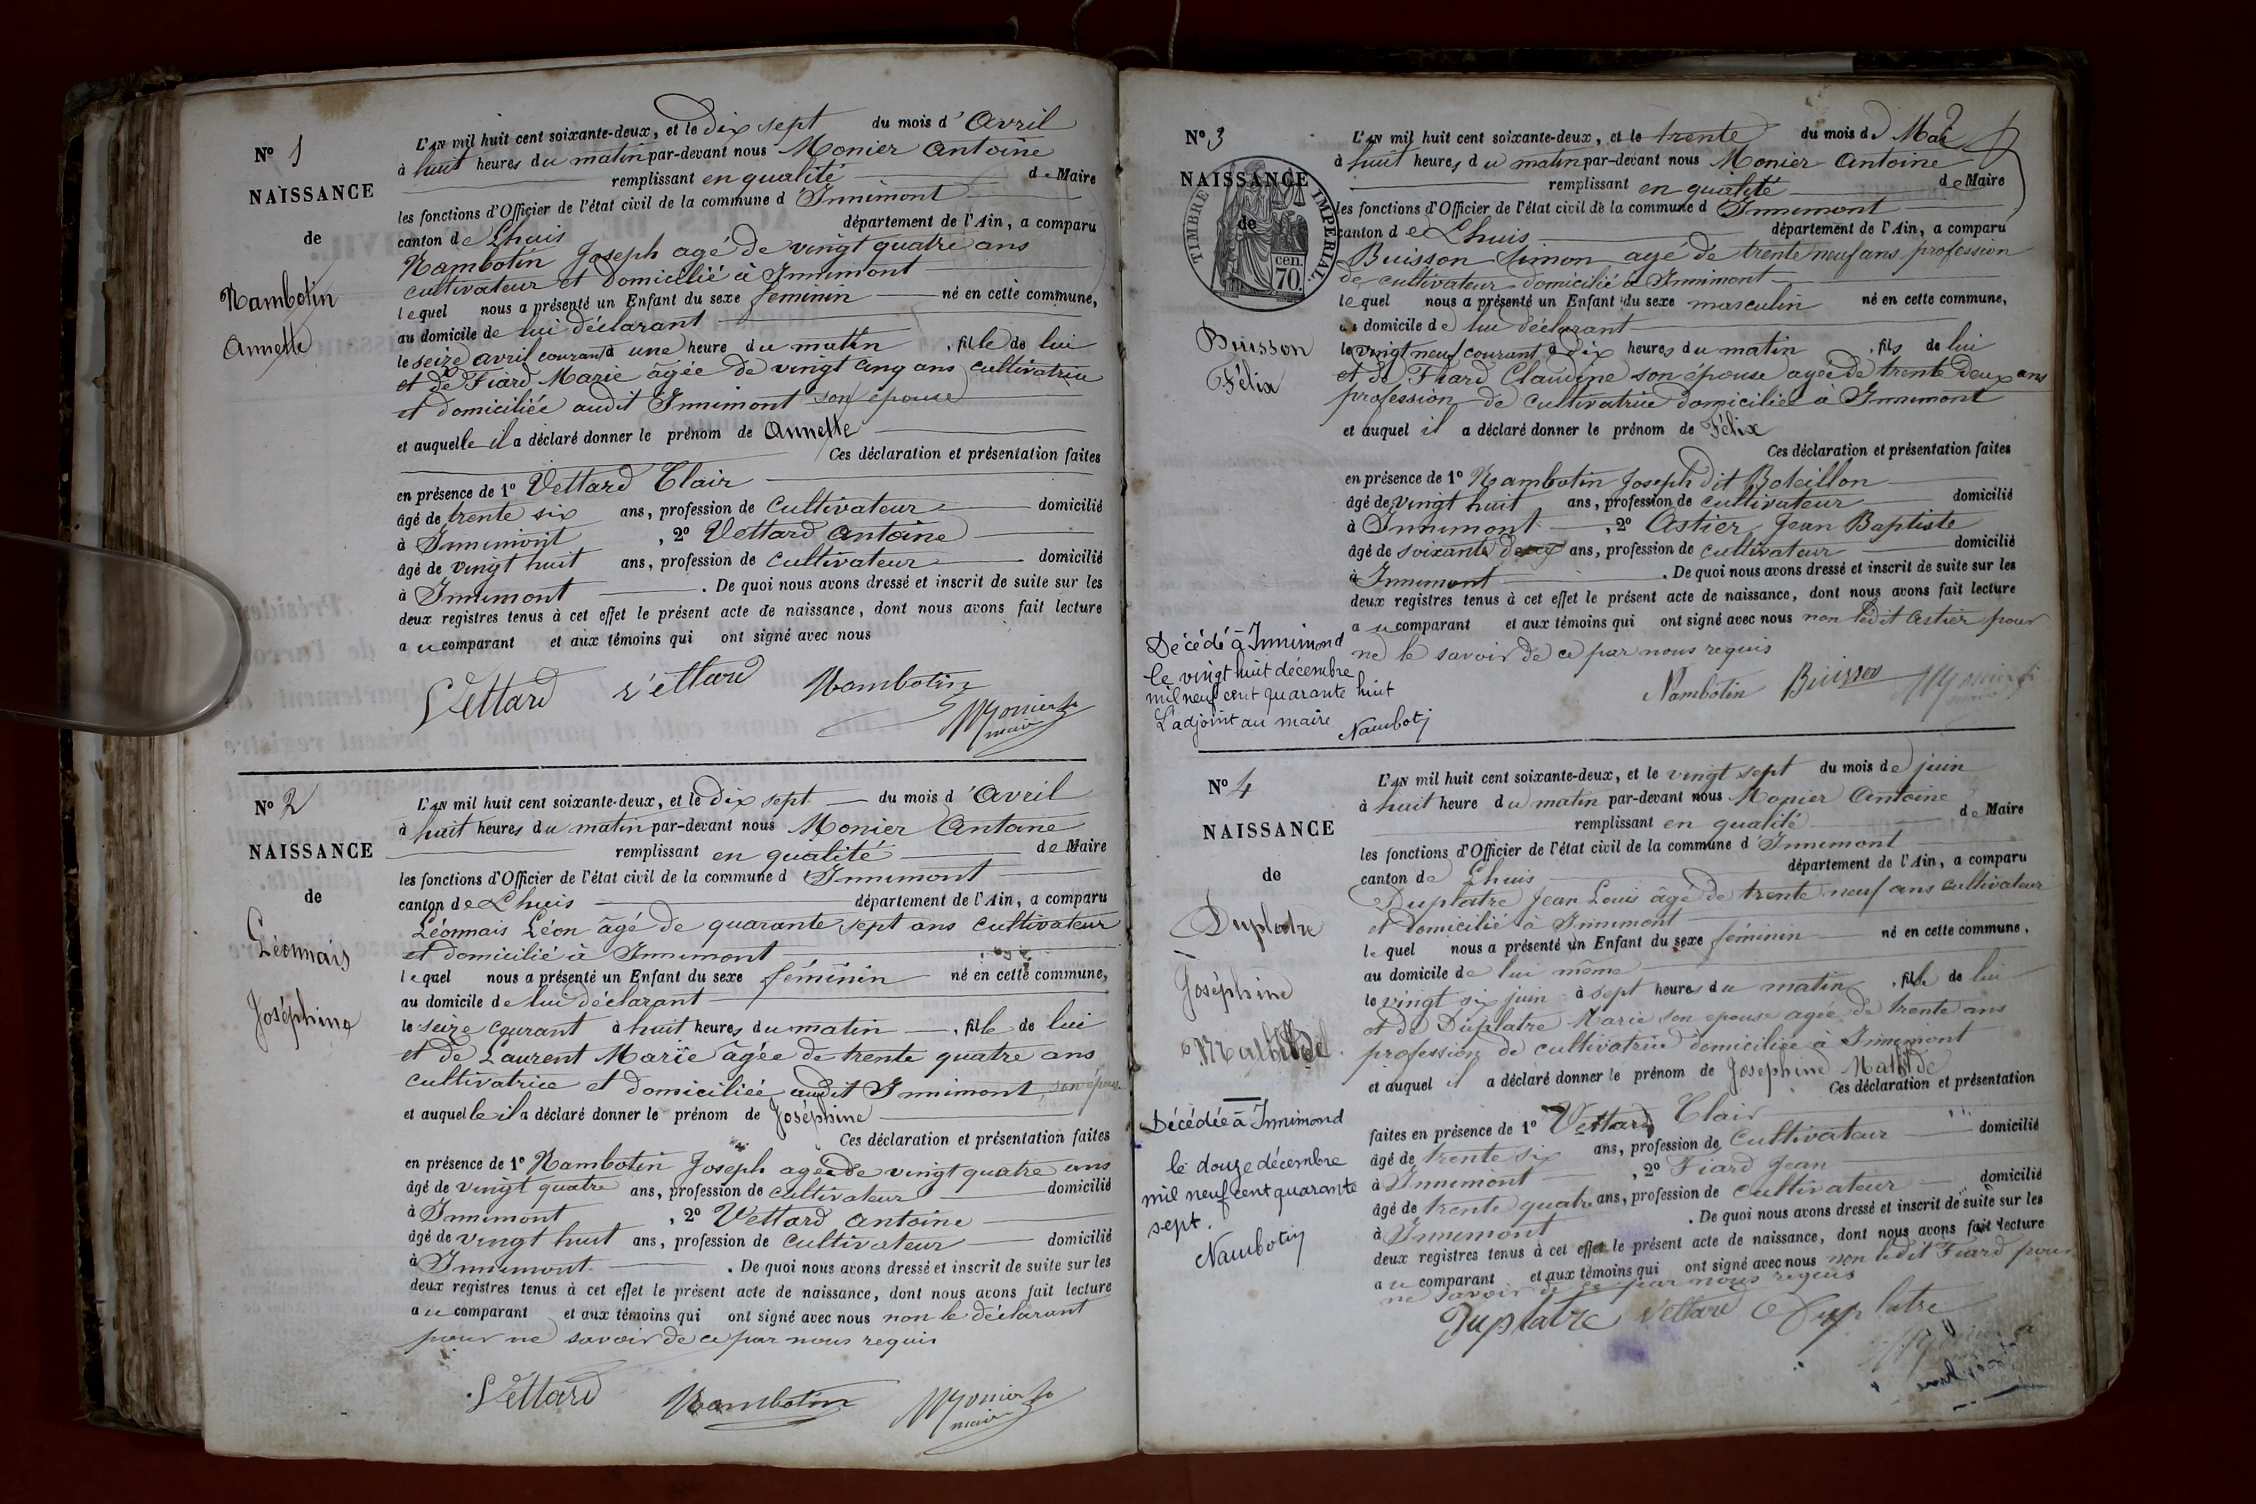 N° 1
NAISSANCE
de
Nambotin
Annette
L'AN mil huit cent soixante-deux, et le dix sept du mois d'Avril
à huit heures du matin par-devant nous Monier Antoine
remplissant en qualité de Maire
les fonctions d'Officier de l'état civil de la commune d'Innimont
canton de Lhuis département de l'Ain, a comparu
Nambotin Joseph agé de vingt quatre ans
cultivateur et domicilié à Innimont
lequel nous a présenté un Enfant du sexe féminin né en cette commune,
au domicile de lui déclarant
le seize avril courant à une heure du matin, fille de lui
et de Fiard Marie âgée de vingt cinq ans cultivatrice
et domiciliée audit Innimont son épouse
et auquelle il a déclaré donner le prénom de Annette
Ces déclaration et présentation faites
en présence de 1° Vettard Clair
âgé de trente six ans, profession de cultivateur domicilié
à Innimont, 2° Vettard Antoine
âgé de vingt huit ans, profession de cultivateur domicilié
à Innimont. De quoi nous avons dressé et inscrit de suite sur les
deux registres tenus à cet effet le présent acte de naissance, dont nous avons fait lecture
au comparant et aux témoins qui ont signé avec nous
Vettard Vettard Nambotin
Monier
maire
N° 2
NAISSANCE
de
Léonnais
Joséphine
L'AN mil huit cent soixante-deux, et le dix sept du mois d'Avril
à huit heures du matin par-devant nous Monier Antoine
remplissant en qualité de Maire
les fonctions d'Officier de l'état civil de la commune d'Innimont
canton de Lhuis département de l'Ain, a comparu
Léonnais Léon âgé de quarante sept ans cultivateur
et domicilié à Innimont
lequel nous a présenté un Enfant du sexe féminin né en cette commune,
au domicile de lui déclarant
le seize courant à huit heures du matin, fille de lui
et de Laurent Marie âgée de trente quatre ans
cultivatrice et domiciliée audit Innimont son épouse
et auquelle il a déclaré donner le prénom de Joséphine
Ces déclaration et présentation faites
en présence de 1° Nambotin Joseph agée de vingt quatre ans
âgé de vingt quatre ans, profession de cultivateur domicilié
à Innimont, 2° Vettard Antoine
âgé de vingt huit ans, profession de cultivateur domicilié
à Innimont. De quoi nous avons dressé et inscrit de suite sur les
deux registres tenus à cet effet le présent acte de naissance, dont nous avons fait lecture
au comparant et aux témoins qui ont signé avec nous non le déclarant
pour ne savoir de ce par nous requis
Vettard Nambotin Monier
maire
N° 3
NAISSANCE
de
TIMBRE IMPÉRIAL
70 cen.
Buisson
Félix
L'AN mil huit cent soixante-deux, et le trente du mois de Mai
à huit heures du matin par-devant nous Monier Antoine
remplissant en qualité de Maire
les fonctions d'Officier de l'état civil de la commune d Innimont
canton de Lhuis département de l'Ain, a comparu
Buisson Simon agé de trente neuf ans profession
de cultivateur domicilié à Innimont
lequel nous a présenté un Enfant du sexe masculin né en cette commune,
au domicile de lui déclarant
le vingt neuf courant à dix heures du matin, fils de lui
et de Fiard Claudine son épouse agée de trente deux ans
profession de cultivatrice domiciliée à Innimont
et auquel il a déclaré donner le prénom de Félix
Ces déclaration et présentation faites
en présence de 1° Nambotin Joseph dit Boteillon
âgé de vingt huit ans, profession de cultivateur domicilié
à Innimont, 2° Astier Jean Baptiste
âgé de soixante deux ans, profession de cultivateur domicilié
à Innimont. De quoi nous avons dressé et inscrit de suite sur les
deux registres tenus à cet effet le présent acte de naissance, dont nous avons fait lecture
au comparant et aux témoins qui ont signé avec nous non ledit Astier pour
ne le savoir de ce par nous requis
Nambotin Buisson Monier
Décédé à Innimond
le vingt huit décembre
mil neuf cent quarante huit
L'adjoint au maire
Nambotin
N° 4
NAISSANCE
de
Duplatre
Joséphine
Mathilde
L'AN mil huit cent soixante-deux, et le vingt sept du mois de juin
à huit heure du matin par-devant nous Monier Antoine
remplissant en qualité de Maire
les fonctions d'Officier de l'état civil de la commune d'Innimont
canton de Lhuis département de l'Ain, a comparu
Duplatre Jean Louis âgé de trente neuf ans cultivateur
et domicilié à Innimont
lequel nous a présenté un Enfant du sexe féminin né en cette commune,
au domicile de lui même
le vingt six juin à sept heures du matin, fille de lui
et de Duplatre Marie son epouse agée de trente ans
profession de cultivatrice domiciliée à Innimont
et auquel il a déclaré donner le prénom de Joséphine Mathilde
Ces déclaration et présentation
faites en présence de 1° Vettard Clair
âgé de trente six ans, profession de cultivateur domicilié
à Innimont, 2° Fiard Jean
âgé de trente quatre ans, profession de cultivateur domicilié
à Innimont. De quoi nous avons dressé et inscrit de suite sur les
deux registres tenus à cet effet le présent acte de naissance, dont nous avons fait lecture
au comparant et aux témoins qui ont signé avec nous non ledit Fiard pour
ne savoir de ce par nous requis
Duplatre Vettard Duplatre
Décédée à Innimond
le douze décembre
mil neuf cent quarante
sept.
Nambotin